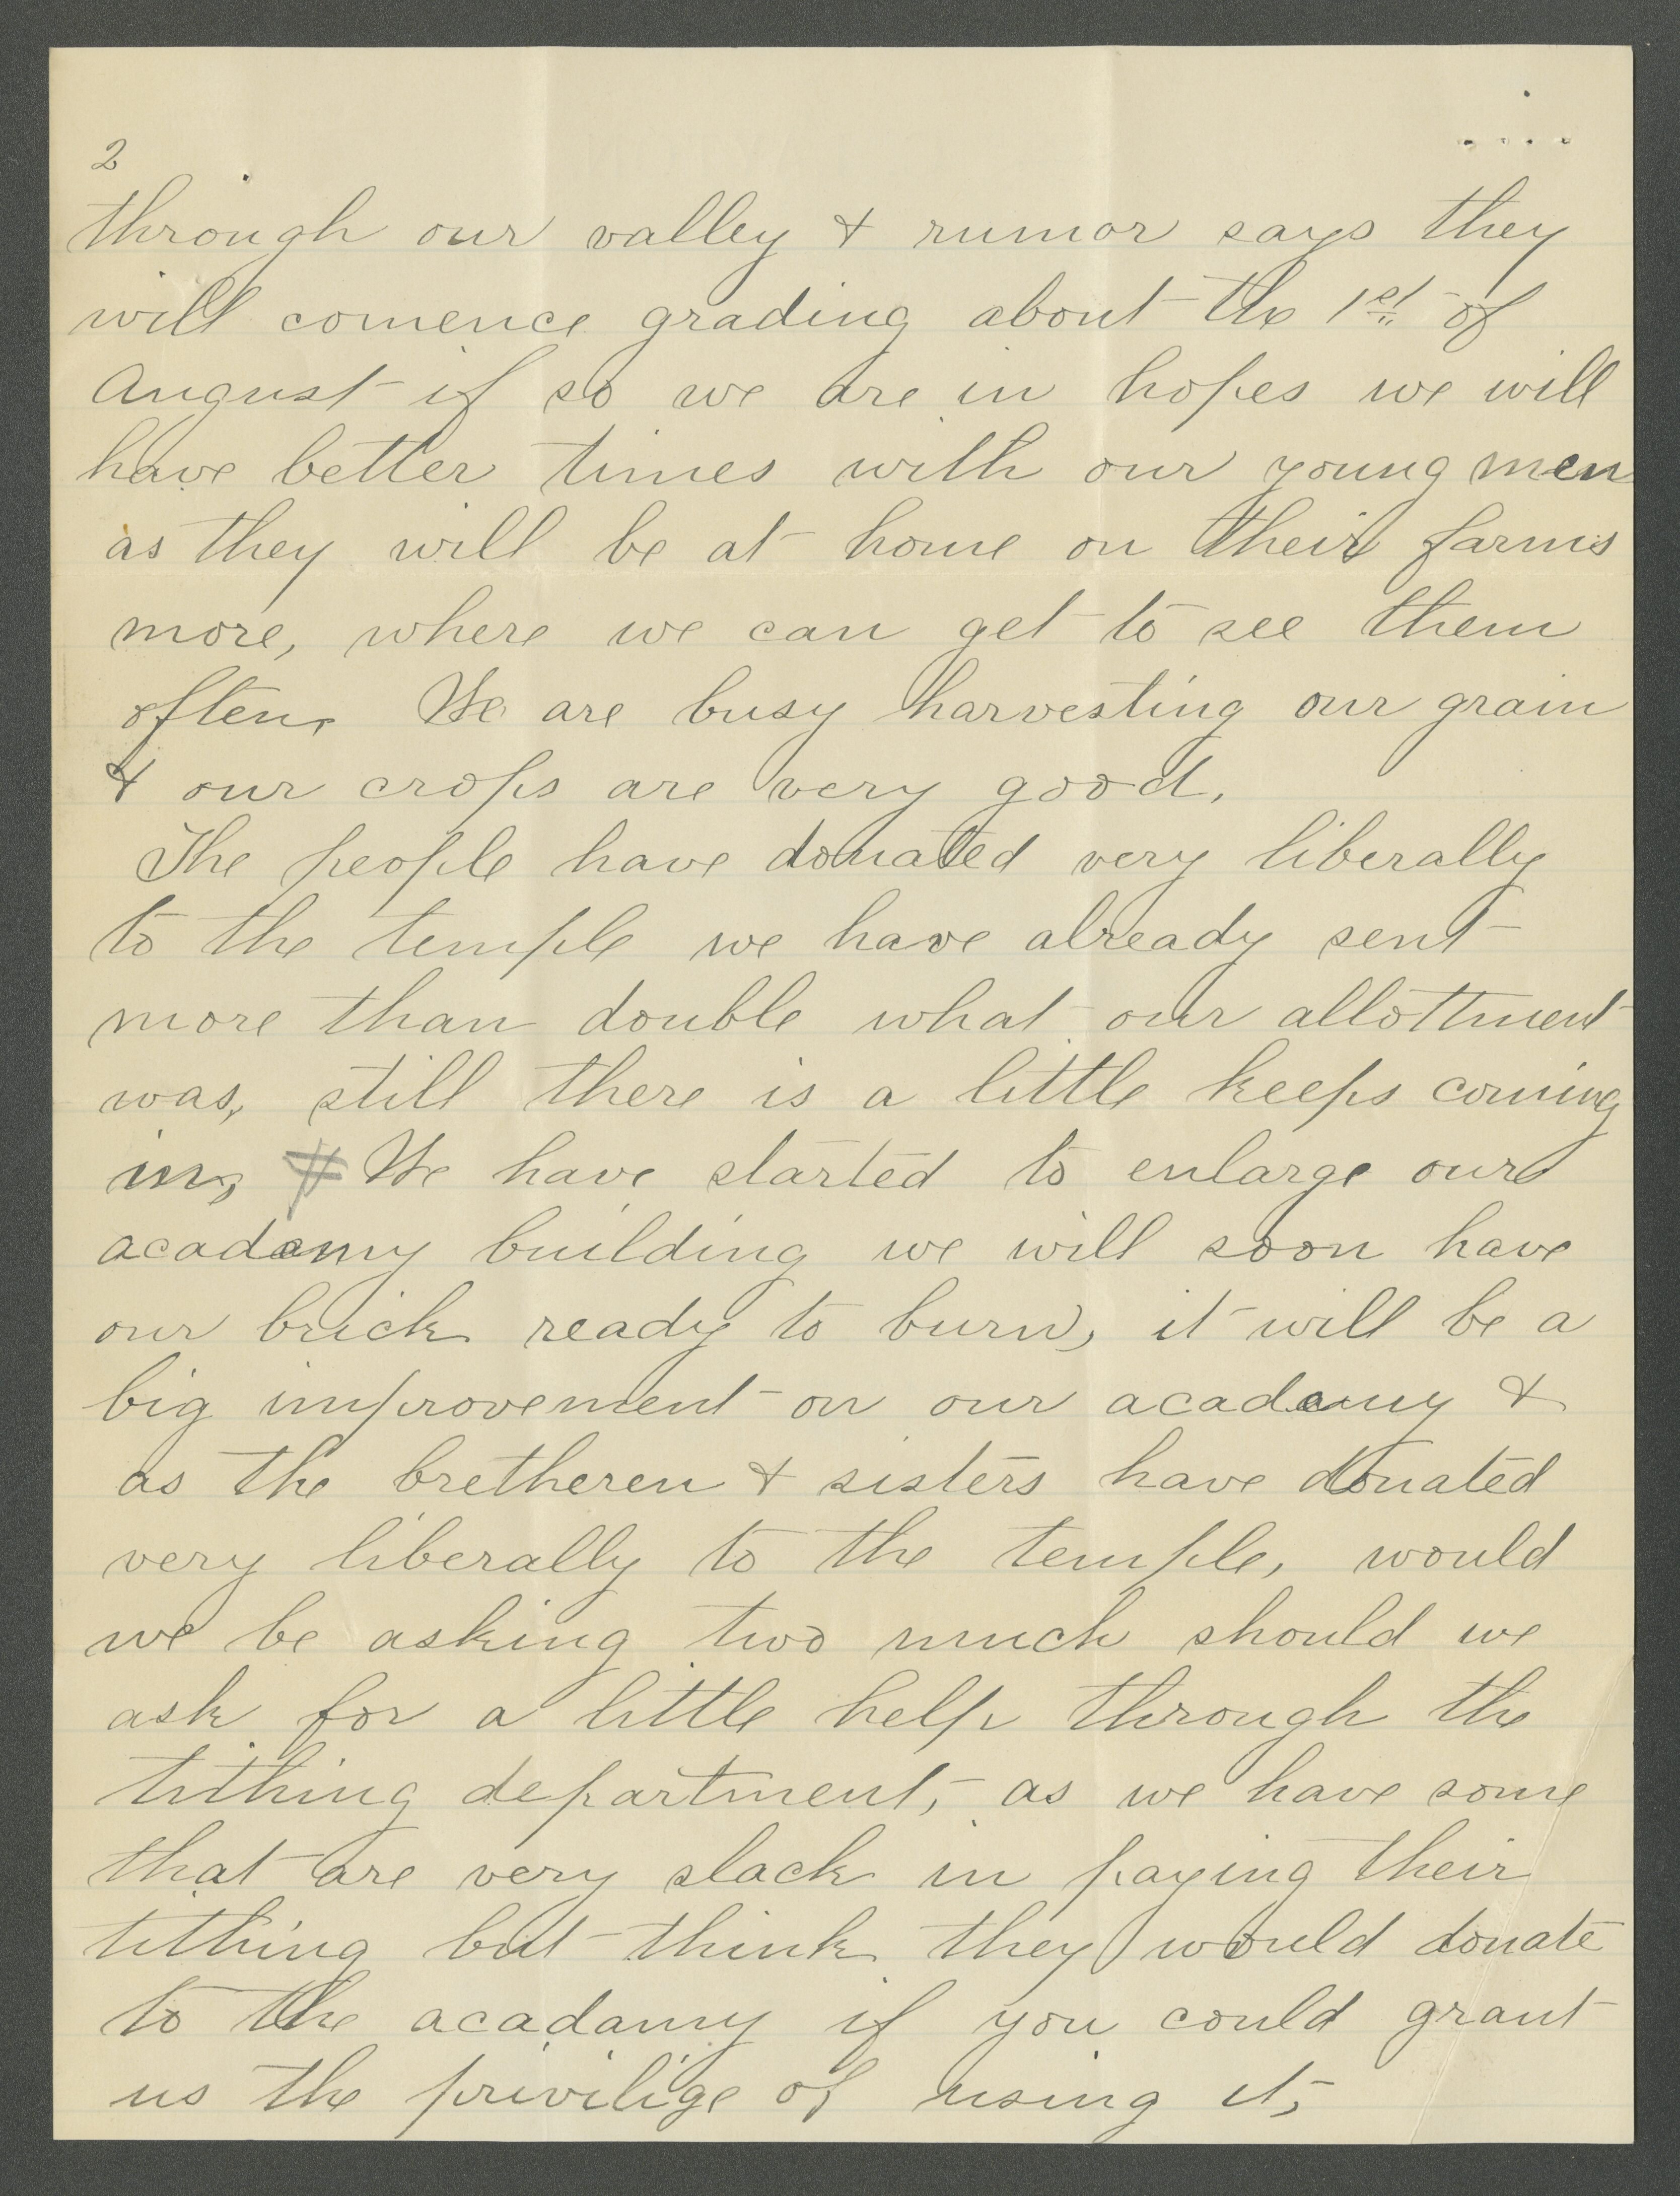 2
through our valley & rumor says they
will comence grading about the 1st of
August if so we are in hopes we will
have better times with our young men
as they will be at home on their farms
more, where we can get to see them
often, We are busy harvesting our grain
& our crops are very good,
The people have donated very liberally
to the temple we have already sent
more than double what our allottment
was, still there is a little keeps coming
in, # We have started to enlarge our
acadamy building we will soon have
our brick ready to burn, it will be a
big improvement on our acadamy &
as the bretheren & sisters have donated
very liberally to the temple, would
we be asking two much should we
ask for a little help through the
tithing department, as we have some
that are very slack in paying their
tithing but think they would donate
to the acadamy if you could grant
us the privilige of using it,